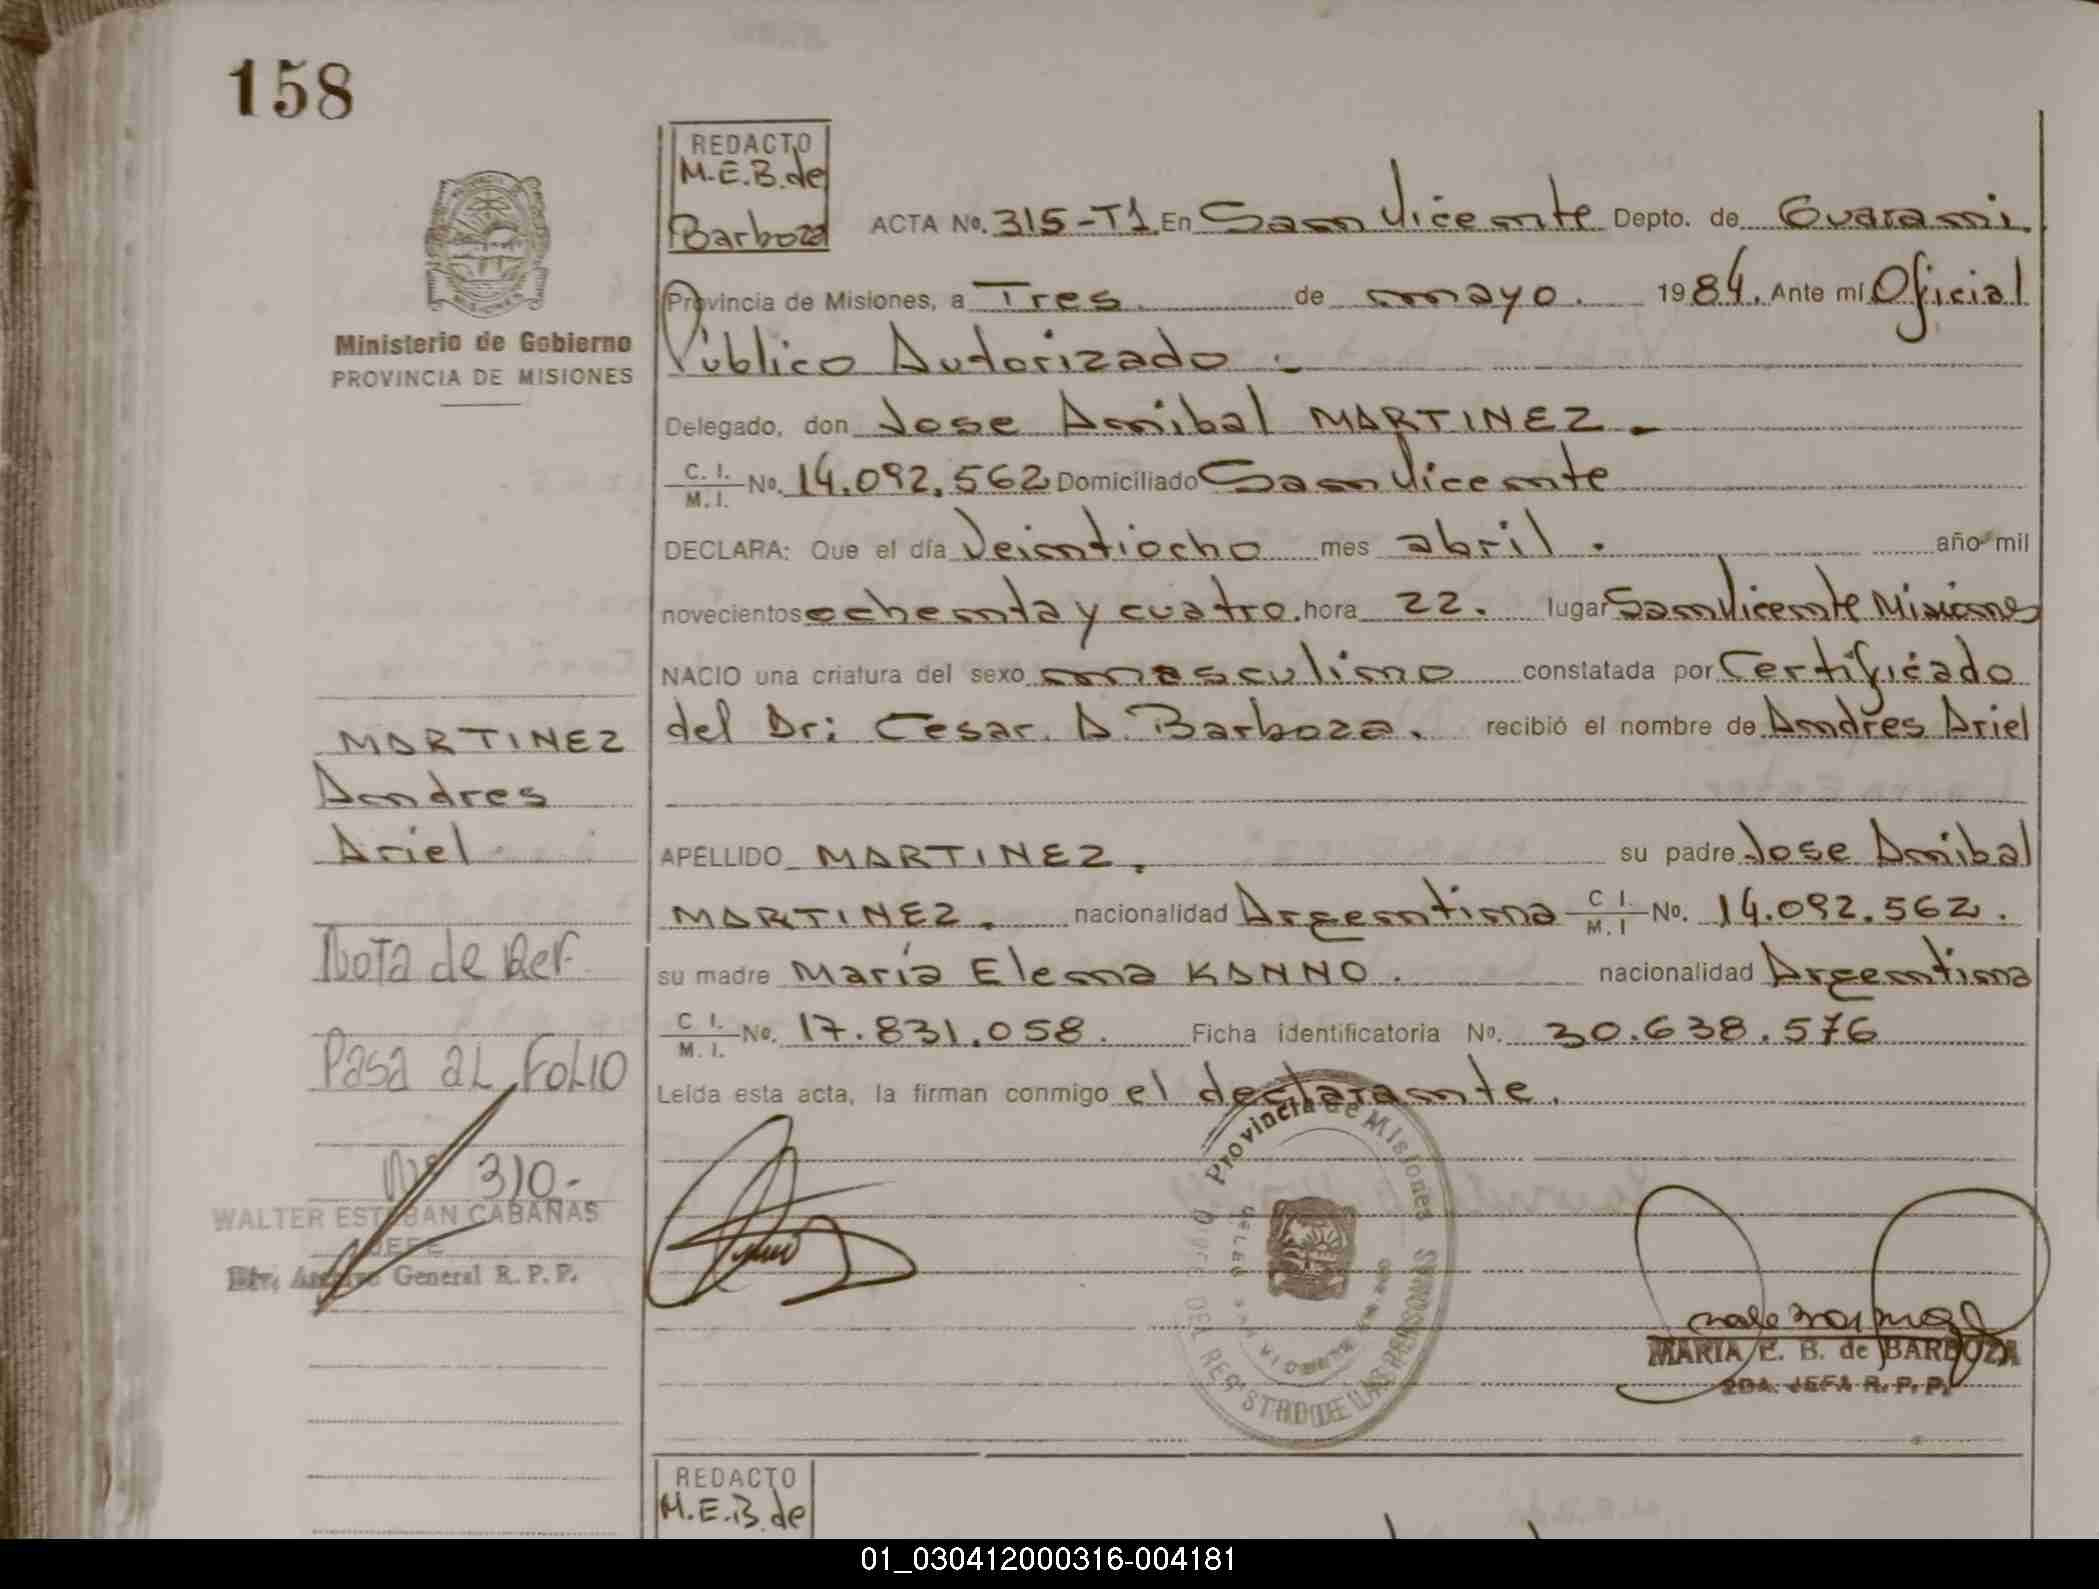 158
REDACTO
M.E.B. de
Barboza
ACTA No. 315-T1 En San Vicente Depto. de Guarani.
Provincia de Misiones, a Tres de mayo. 1984. Ante mí Oficial
Público Autorizado.
Ministerio de Gobierno
PROVINCIA DE MISIONES
Delegado, don Jose Anibal MARTINEZ.
C. I. / M. I. No. 14.092.562 Domiciliado San Vicente
DECLARA: Que el día Veintiocho mes abril. año mil
novecientos ochenta y cuatro. hora 22. lugar San Vicente Misiones
NACIO una criatura del sexo masculino constatada por Certificado
del Dr: Cesar. A. Barboza. recibió el nombre de Andres Ariel
MARTINEZ
Andres
Ariel
APELLIDO MARTINEZ. su padre Jose Anibal
MARTINEZ. nacionalidad Argentina C I. / M. I No. 14.092.562.
su madre María Elena KANNO. nacionalidad Argentina
C I. / M. I. No. 17.831.058. Ficha identificatoria No. 30.638.576
Leida esta acta, la firman conmigo el declarante.
Nota de Ref.
Pasa al Folio
Nº 310.-
WALTER ESTEBAN CABAÑAS
JEFE
Div. Archivo General R. P. P.
Provincia de Misiones
REGISTRO DE LAS PERSONAS
MARIA E. B. de BARBOZA
2DA. JEFA R. P. P.
REDACTO
M.E.B. de
01_030412000316-004181